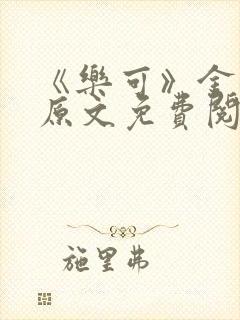 《樂可》全
原文免費閱
施里弗